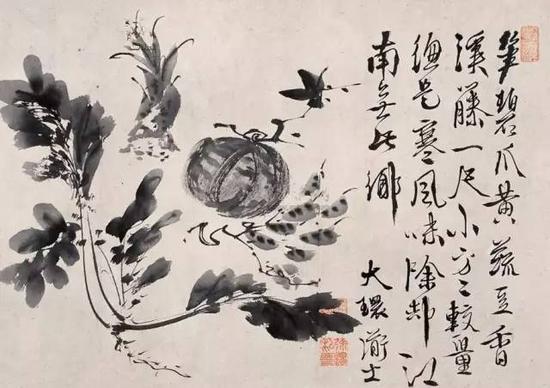 笋碧瓜黃蔬豆香
溪藤一尺小方〻較量
總是寒風味除却江
南無此鄉
大環衜士